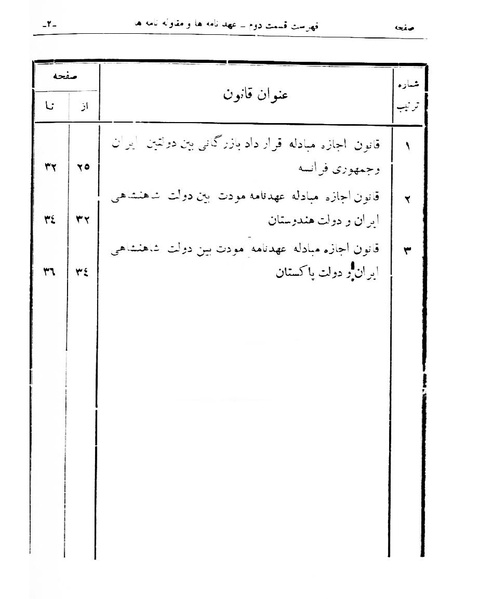 صفحه فهرست قسمت دوم - عهد نامه ها و مقاوله نامه ها -۲-
شماره ترتیب عنوان قانون صفحه
از تا
۱ قانون اجازه مبادله قرار داد بازرگانی بین دولتین ایران
وجمهوری فرانسه ۲۵ ۳۲
۲ قانون اجازه مبادله عهدنامه مودت بین دولت شاهنشاهی
ایران و دولت هندوستان ۳۲ ۳٤
۳ قانون اجازه مبادله عهدنامه مودت بین دولت شاهنشاهی
ایران و دولت پاکستان ۳٤ ۳٦